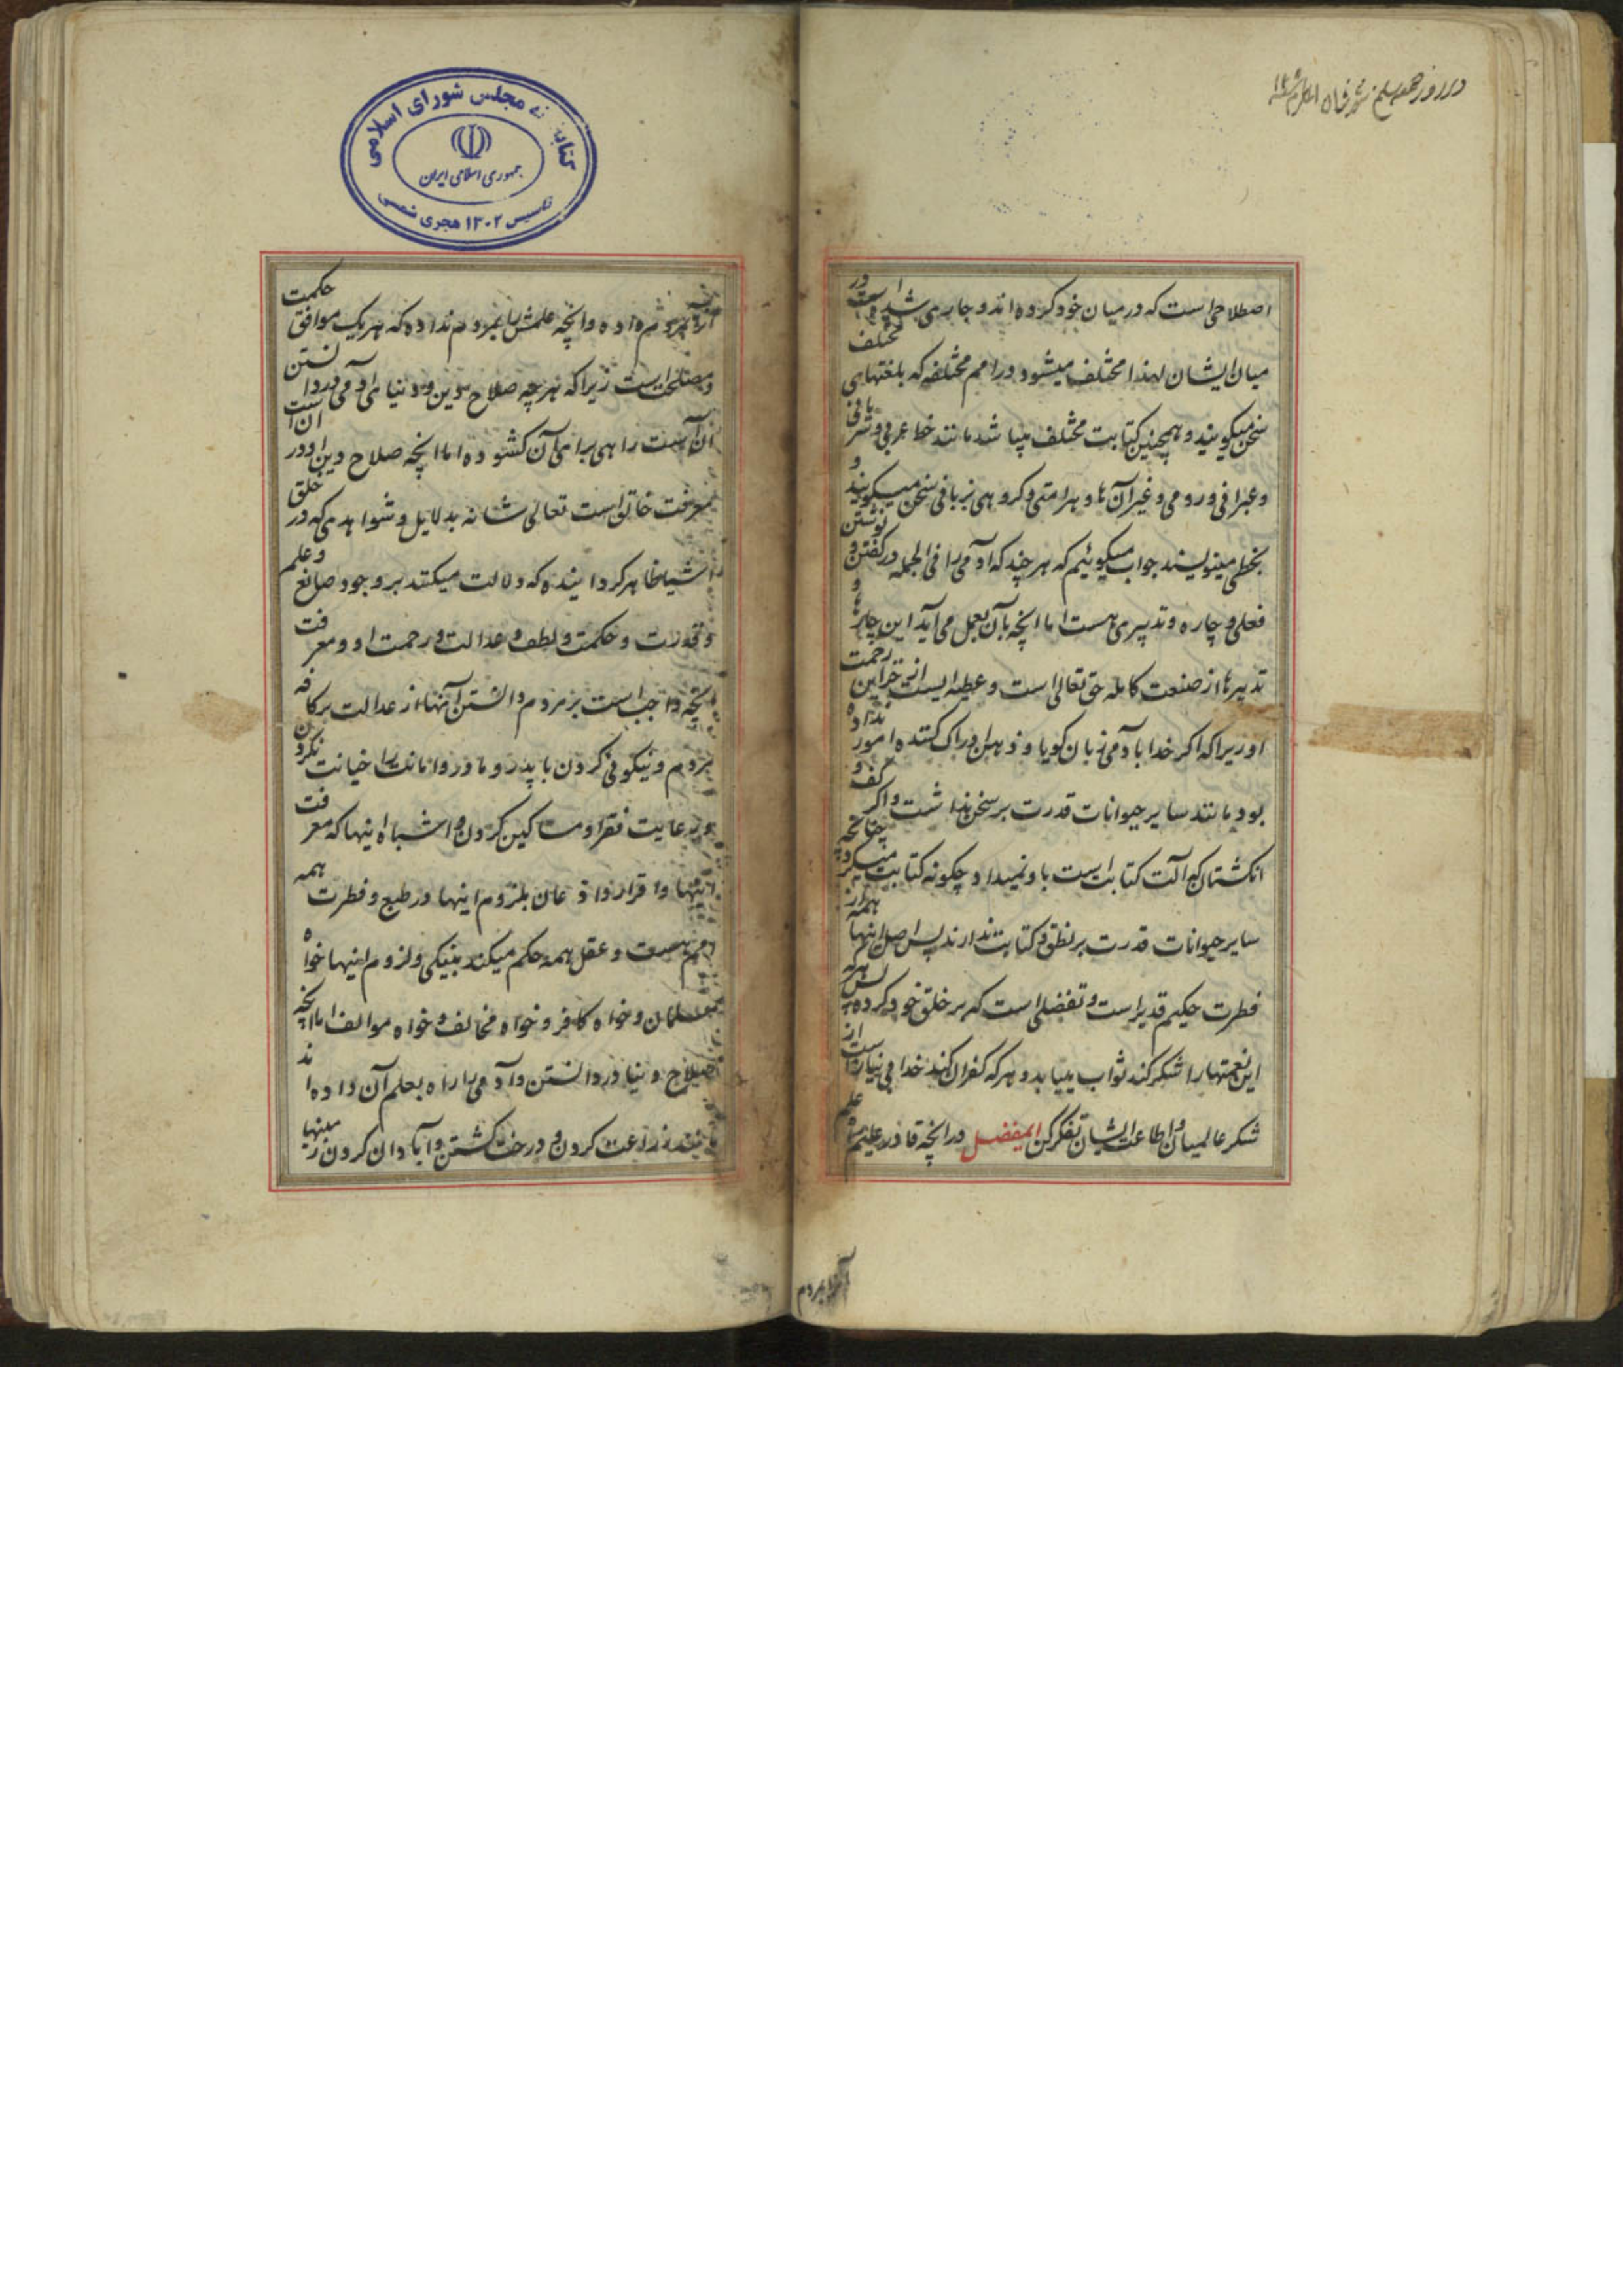 در روز جمعه سلخ شهر
اصطلاحی است که در میان خود کرده اند و جاری شده است در
میان ایشان لهذا مختلف میشود در امم مختلفه که بلغتهای مختلف
سخن میکویند و همچنین کتابت مختلف میباشد مانند خط عربی و سریانی
و عبرانی و رومی و غیر آن ها و هر امتی و کروهی بزبانی سخن میکویند و
بخطی مینویسند جواب میکوئیم که هر چند که آدمی را فی الجمله در کفتن و نوشتن
فعلی و چاره و تدبیری هست اما انچه بآن بعمل می آید این چاره و
تدبیرها از صنعت کامله حق تعالی است و عطیه ایست از خزاین رحمت
او زیرا که اکر خدا بآدمی زبان کویا و ذهن ادراک کننده امور نداده
بود مانند سایر حیوانات قدرت بر سخن نداشت و اکر کف و
انکشتان که آلت کتابت است باو نمیداد چکونه کتابت میکرد چنانچه
سایر حیوانات قدرت بر نطق و کتابت ندارند پس اصل اینها همه از
فطرت حکیم قدیر است و تفضلی است که بر خلق خود کرده پس هر که
این نعمتها را شکر کند ثواب مییابد و هر که کفران کند خدا بی نیاز است از
شکر عالمیان و اطاعت ایشان تفکر کن ایمفضل در انچه قادر علیم علم
آنرا بمردم
آنرا بمردم داده و انچه علمش را بمردم نداده که هر یک موافق حکمت
و مصلحت است زیرا که هر چه صلاح دین و دنیای آدمی در دانستن
آن است راهی برای آن کشوده اما انچه صلاح دین او در آن است
معرفت خالق است تعالی شانه بدلایل و شواهدی که در خلق
اشیا ظاهر کردانیده که دلالت میکنند بر وجود صانع و علم
و قدرت و حکمت و لطف و عدالت و رحمت او و معرفت
انچه واجب است بر مردم دانستن آنها از عدالت بر کافه
مردم و نیکوئی کردن با پدر و مادر و امانت را خیانت نکردن
و رعایت فقرا و مساکین کردن و اشباه اینها که معرفت
اینها و اقرار و اذعان بلزوم اینها در طبع و فطرت همه
امم هست و عقل همه حکم میکند بنیکی و لزوم اینها خواه
مسلمان و خواه کافر و خواه مخالف و خواه موالف اما انچه
صلاح دنیا در دانستن و آدمی را راه بعلم آن داده اند
مانند زراعت کردن و درخت کشتن و آبادان کردن زمینها
کتابخانه مجلس شورای اسلامی
جمهوری اسلامی ایران
تاسیس ۱۳۰۲ هجری شمسی